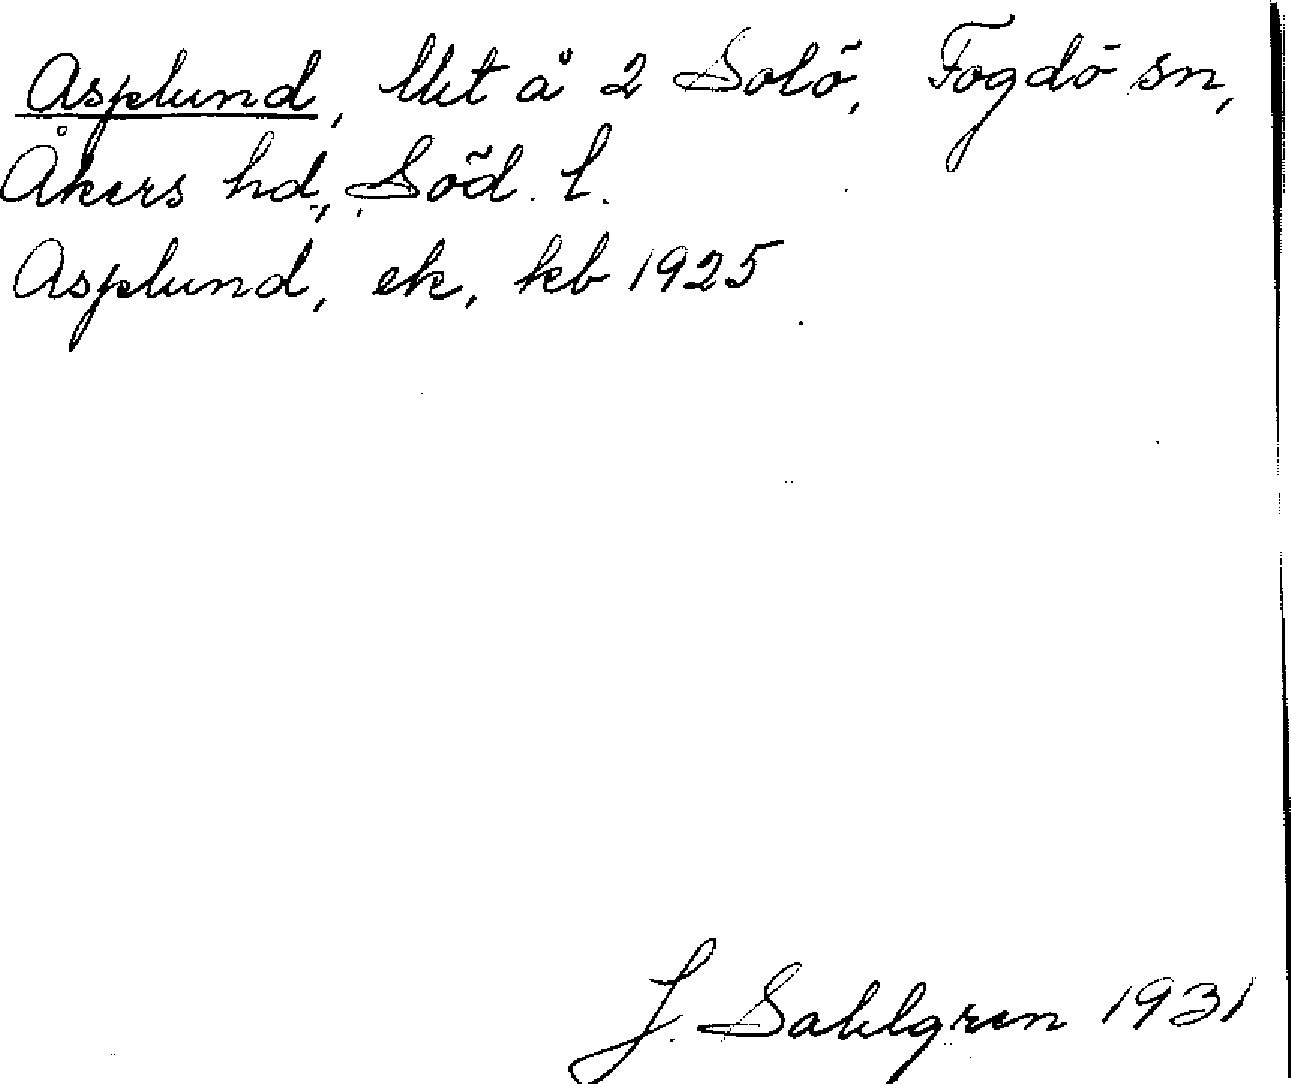 Asplund, lht å 2 Solö, Fogdö sn,
Åkers hd, Söd. l.
Asplund, ek, kb 1925
J. Sahlgren 1931